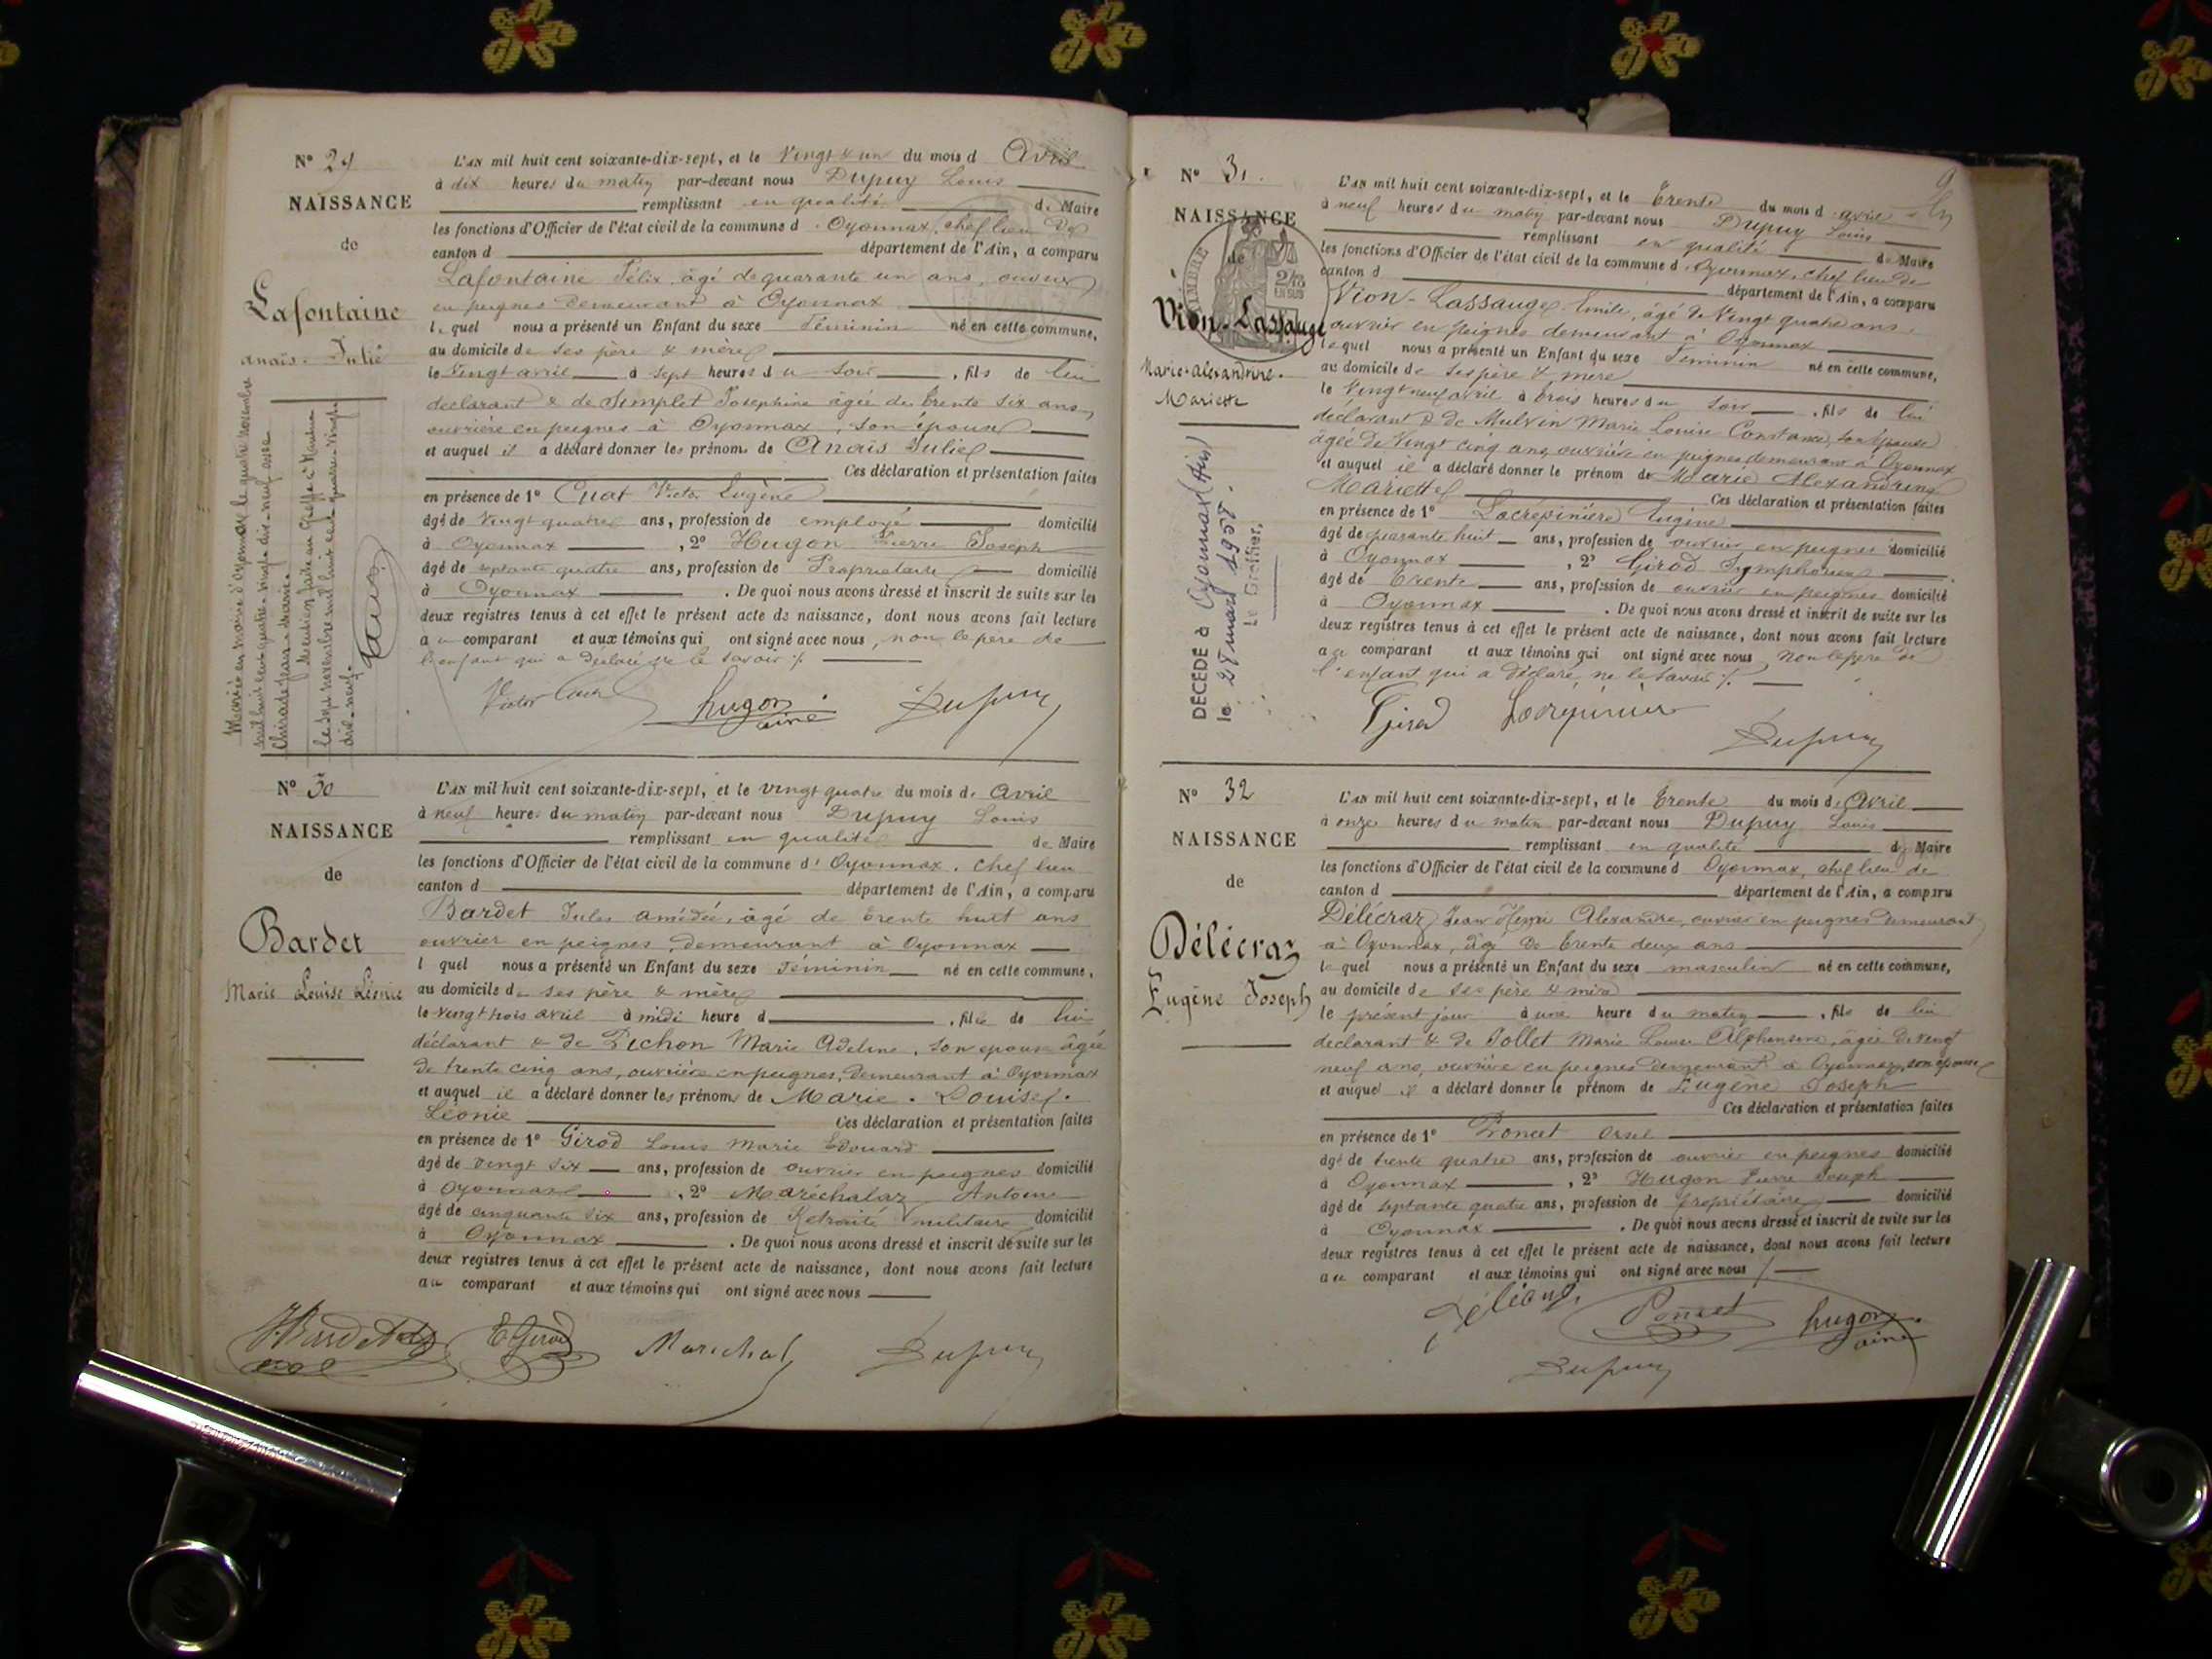 N° 29
NAISSANCE
de
Lafontaine
anaïs. Julie
L'AN mil huit cent soixante-dix-sept, et le Vingt & un du mois d Avril
à dix heures du matin par-devant nous Dupuy Louis
remplissant en qualité de Maire
les fonctions d'Officier de l'état civil de la commune d Oyonnax, chef lieu de
canton d département de l'Ain, a comparu
Lafontaine Félix, âgé de quarante un ans, ouvrier
en peignes demeurant à Oyonnax
lequel nous a présenté un Enfant du sexe Féminin né en cette commune,
au domicile de ses père & mère
le Vingt avril à sept heures du soir, fils de lui
déclarant & de Simplet Josephine âgée de trente six ans,
ouvrière en peignes à Oyonnax, son épouse
et auquel il a déclaré donner les prénoms de Anaïs Julie
Ces déclaration et présentation faites
en présence de 1° Cuat Victor Eugène
âgé de vingt quatre ans, profession de employé domicilié
à Oyonnax, 2° Hugon Pierre Joseph
âgé de septante quatre ans, profession de Propriétaire domicilié
à Oyonnax. De quoi nous avons dressé et inscrit de suite sur les
deux registres tenus à cet effet le présent acte de naissance, dont nous avons fait lecture
au comparant et aux témoins qui ont signé avec nous, non le père de
l'enfant qui a déclaré ne le savoir ./.
Victor Cuat Hugon aîné Dupuy
Mariée en mairie d'Oyonnax le quatre novembre
mil huit cent quatre-vingt-dix-neuf avec
Mention faite au greffe à Nantua
le sept novembre mil huit cent quatre-vingt-
dix-neuf.
N° 30
NAISSANCE
de
Bardet
Marie Louise Léonie
L'AN mil huit cent soixante-dix-sept, et le vingt quatre du mois d. Avril
à neuf heures du matin par-devant nous Dupuy Louis
remplissant en qualité de Maire
les fonctions d'Officier de l'état civil de la commune d'Oyonnax. chef lieu
canton d département de l'Ain, a comparu
Bardet Jules amédée, âgé de trente huit ans
ouvrier en peignes, demeurant à Oyonnax
l quel nous a présenté un Enfant du sexe Féminin né en cette commune,
au domicile de ses père & mère
le vingt trois avril à midi heure d , fille de lui
déclarant & de Pichon Marie Adeline, son épouse âgée
de trente cinq ans, ouvrière en peignes, demeurant à Oyonnax
et auquel il a déclaré donner les prénoms de Marie. Louise.
Léonie Ces déclaration et présentation faites
en présence de 1° Girod Louis Marie Edouard
âgé de vingt six ans, profession de ouvrier en peignes domicilié
à Oyonnax, 2° Maréchalaz Antoine
âgé de cinquante six ans, profession de Retraité militaire domicilié
à Oyonnax. De quoi nous avons dressé et inscrit de suite sur les
deux registres tenus à cet effet le présent acte de naissance, dont nous avons fait lecture
au comparant et aux témoins qui ont signé avec nous
E Girod Marichal Dupuy
N° 31.
NAISSANCE
de
Vion-Lassauge
Marie-alexandrine.
Mariette
TIMBRE
EN SUS
DÉCÉDÉ à Oyonnax (Ain)
Le Greffier,
L'AN mil huit cent soixante-dix-sept, et le Trente du mois d avril
à neuf heures du matin par-devant nous Dupuy Louis
remplissant en qualité de Maire
les fonctions d'Officier de l'état civil de la commune d Oyonnax, chef lieu de
canton d département de l'Ain, a comparu
Vion-Lassauge Emile, âgé de Vingt quatre ans.
ouvrier en peignes demeurant à Oyonnax
lequel nous a présenté un Enfant du sexe Féminin né en cette commune,
au domicile de ses père & mère
le Vingt neuf avril à trois heures du soir, fils de lui
déclarant & de Mulvin Marie Louise Constance, son épouse
âgée de Vingt cinq ans, ouvrière en peignes demeurant à Oyonnax
et auquel il a déclaré donner le prénom de Marie Alexandrine
Mariette Ces déclaration et présentation faites
en présence de 1° Lacrépinière Eugène
âgé de quarante huit ans, profession de ouvrier en peignes domicilié
à Oyonnax, 2° Girod Symphorien
âgé de trente ans, profession de ouvrier en peignes domicilié
à Oyonnax. De quoi nous avons dressé et inscrit de suite sur les
deux registres tenus à cet effet le présent acte de naissance, dont nous avons fait lecture
au comparant et aux témoins qui ont signé avec nous, non le père de
l'enfant qui a déclaré ne le savoir ./.
Girod Lacrépinière Dupuy
N° 32
NAISSANCE
de
Délécraz
Eugène Joseph
L'AN mil huit cent soixante-dix-sept, et le Trente du mois d. Avril
à onze heures du matin par-devant nous Dupuy Louis
remplissant en qualité de Maire
les fonctions d'Officier de l'état civil de la commune d Oyonnax, chef lieu de
canton d département de l'Ain, a comparu
Délécraz Jean Henri Alexandre, ouvrier en peignes demeurant
à Oyonnax, âgé de trente deux ans
lequel nous a présenté un Enfant du sexe masculin né en cette commune,
au domicile de ses père & mère
le présent jour à une heure du matin, fils de lui
déclarant & de Jollet Marie Louise Alphonsine, âgée de vingt
neuf ans, ouvrière en peignes demeurant à Oyonnax, son épouse
et auquel il a déclaré donner le prénom de Eugène Joseph
Ces déclaration et présentation faites
en présence de 1° Poncet
âgé de trente quatre ans, profession de ouvrier en peignes domicilié
à Oyonnax, 2° Hugon Pierre Joseph
âgé de septante quatre ans, profession de propriétaire domicilié
à Oyonnax. De quoi nous avons dressé et inscrit de suite sur les
deux registres tenus à cet effet le présent acte de naissance, dont nous avons fait lecture
au comparant et aux témoins qui ont signé avec nous ./.
Poncet Hugon aîné
Dupuy